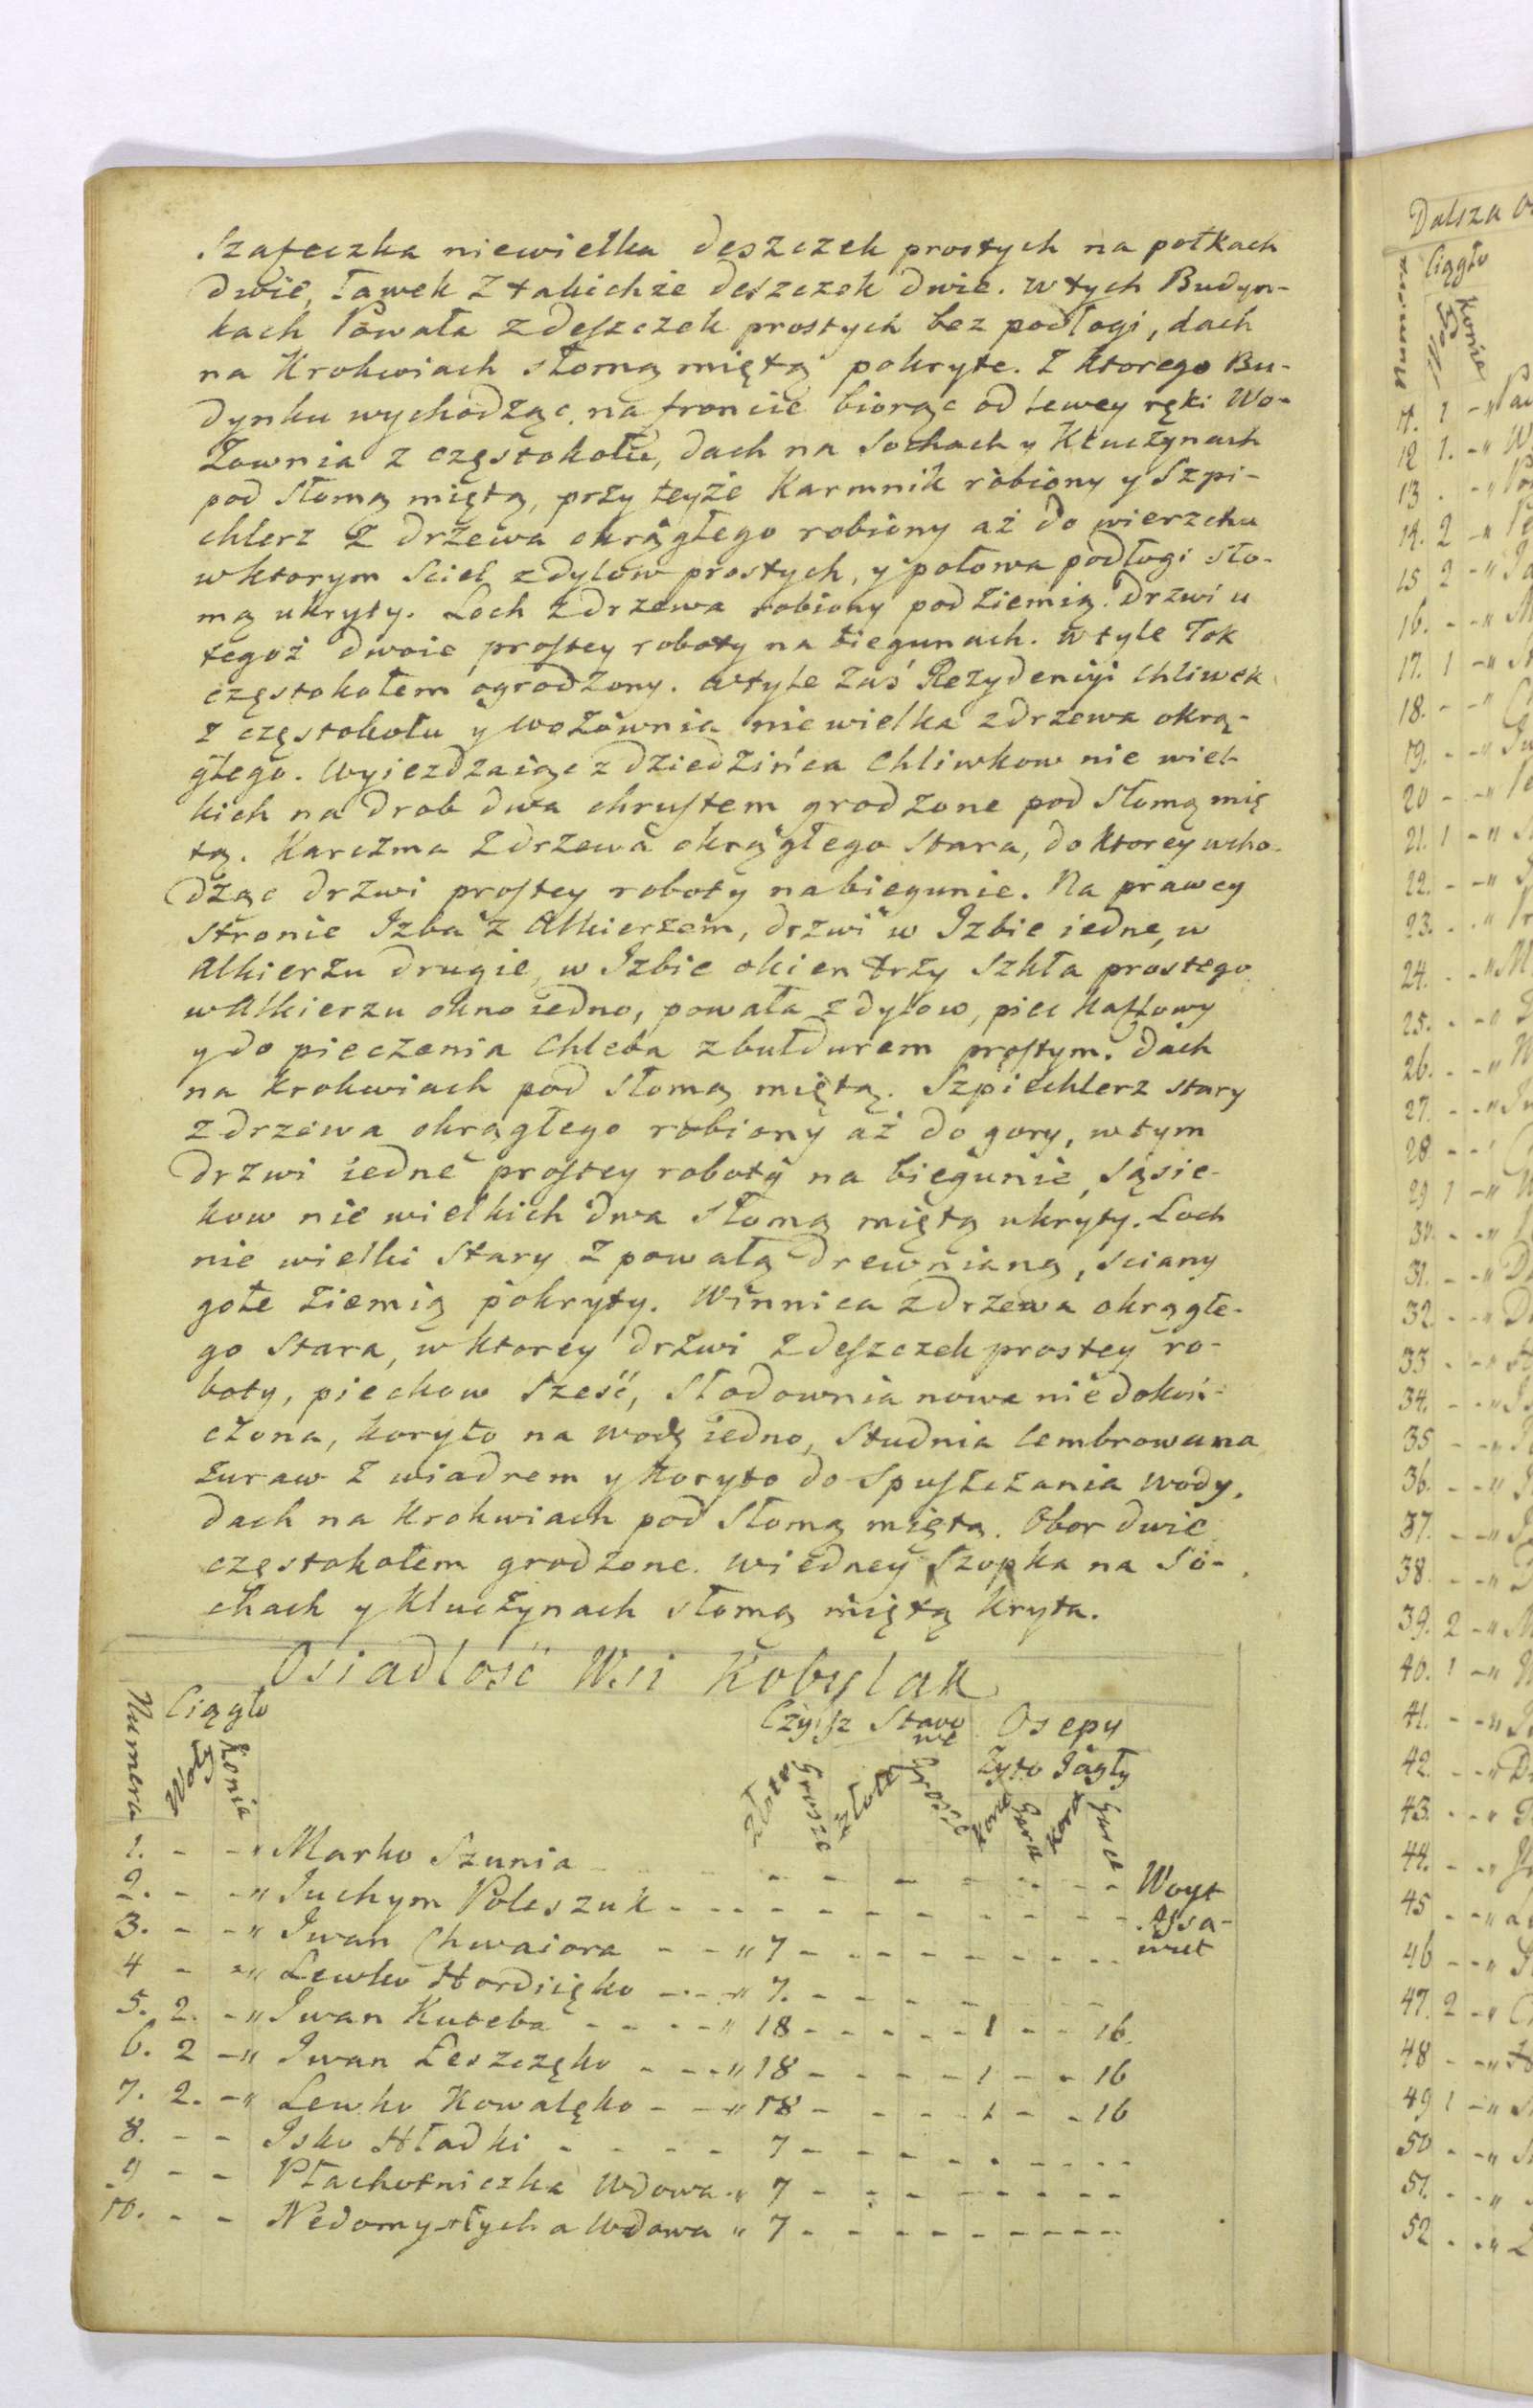 Szafeczka niewielka deszczek prostych na połkach
dwie, ławek z takichże deszczek dwie. w tych Budyn-
kach Powała zdeszczek prostych bez podłogi, dach
na Krokwiach słomą miętą pokryte. Z ktorego Bu-
dynku wychodząc na froncie biorąc od lewey ręki Wo-
zownia z częstokołu, dach na Sochach y Kluczynach
pod Słomą miętą, przy teyże Karmnik robiony y Szpi-
chlerz z drzewa okrągłego robiony aż do wierzchu
wktorym Sciel zdylow prostych, y połowa podłogi sło-
mą ukryty. Loch zdrzewa robiony pod Ziemią. Drzwi u
tegoż dwoie prostey roboty na biegunach. W tyle Tok
częstokołem ogrodzony. Wtyle zaś Rezydencyi Chliwek
z częstokołu y Wozownia niewielka zdrzewa okrą-
głego. Wyiezdzaiąc z dziedzińca Chliwkow nie wiel-
kich na drob dwa chrustem grodzone pod Słomą mię
tą. Karczma zdrzewa okrągłego Stara, do ktorey wcho-
dząc drzwi prostey roboty nabiegunie. Na prawey
stronie Izba z Alkierzem, drzwi w Izbie iedne, w
Alkierzu drugie, w Izbie okien trzy Szkła prostego
wAlkierzu okno iedno, powała zdylow, piec Kaflowy
y do pieczenia Chleba zbułdurem prostym. Dach
na Krokwiach pod Słomą miętą. Szpiechlerz stary
zdrzewa okrągłego robiony aż do gory, wtym
drzwi iedne prostey roboty na biegunie, Sąsie-
kow nie wielkich dwa Słomą miętą ukryty. Loch
nie wielki Stary z powałą drewnianą, sciany
gołe Ziemią pokryty. Winnica zdrzewa okrągłe-
go Stara, wktorey drzwi zdeszczek prostey ro-
boty, pieckow Sześć, Słodownia nowa niedokoń-
czona, koryto na wodę iedno, Studnia cembrowana
Zuraw z wiadrem y Koryto do Spuszczania wody.
dach na Krokwiach pod Słomą miętą. Obor dwie
częstokołem grodzone. Wiedney Szopka na So-
chach y Kluczynach słomą miętą Kryta.
Osiadłość Wsi Kobylak
Numera Ciągło Czysz Stawowe Osepy
Woły Konia Zyto Jagły
Złote Grosze Złote Grosze Korce Garce Korce Garce
1. - - " Marko Szunia - - - - - - - Woyt
2. - - " Juchym Poleszuk - - - - - - - Assa-
wuł
3. - - " Iwan Chwaiora - - " 7 - - - - - - -
4 - - " Lewko Hordiięko - - " 7. - - - - - -
5. 2. - " Iwan Kuceba - - - " 18 - - - - 1 - - 16.
6. 2 - " Iwan Leszczęko - - - " 18 - - - - 1 - - 16
7. 2. - " Lewko Kowalęko - - " 18 - - - - 1 - - 16
8. - - Isko Hładki - - - - 7 - - - - - - -
9 - - Płachotniczka Wdowa " 7 - - - - - - -
10. - - Nedomysłycha Wdowa " 7 - - - - - - -
Dalsza
Ciągło
Konia
11. 1
12 1.
13.
14. 2
15 2
16.
17. 1
18.
19.
20
21. 1
22.
23.
24.
25.
26.
27.
28
29 1
30.
31.
32.
33
34.
35
36.
37.
38.
39. 2
40. 1
41.
42.
43.
44.
45
46
47. 2
48
49 1
50
51.
52